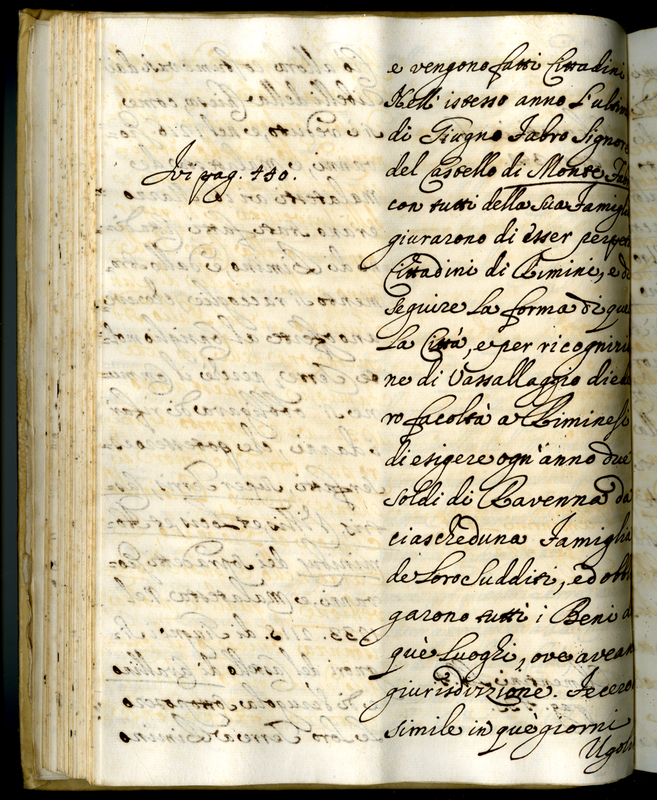 Ivi pag. 440.
e vengono fatti Cittadini
Nell'istesso anno l'ultim
di Giugno Fabro Signore
del Castello di Monte Fab
con tutti della Sua Famiglia
giurarono di esser perpet
Cittadini di Rimini, e di
seguire la forma di que
la Città, e per ricognizio
ne di Vassallaggio diede
ro facoltà a Riminesi
di esigere ogn'anno due
Soldi di Ravenna da
ciascheduna Famiglia
de Loro Sudditi, ed obbli
garono tutti i Beni di
què Luoghi, ove avean
giurisdizione. Fecero
simile in què giorni
Ugoli